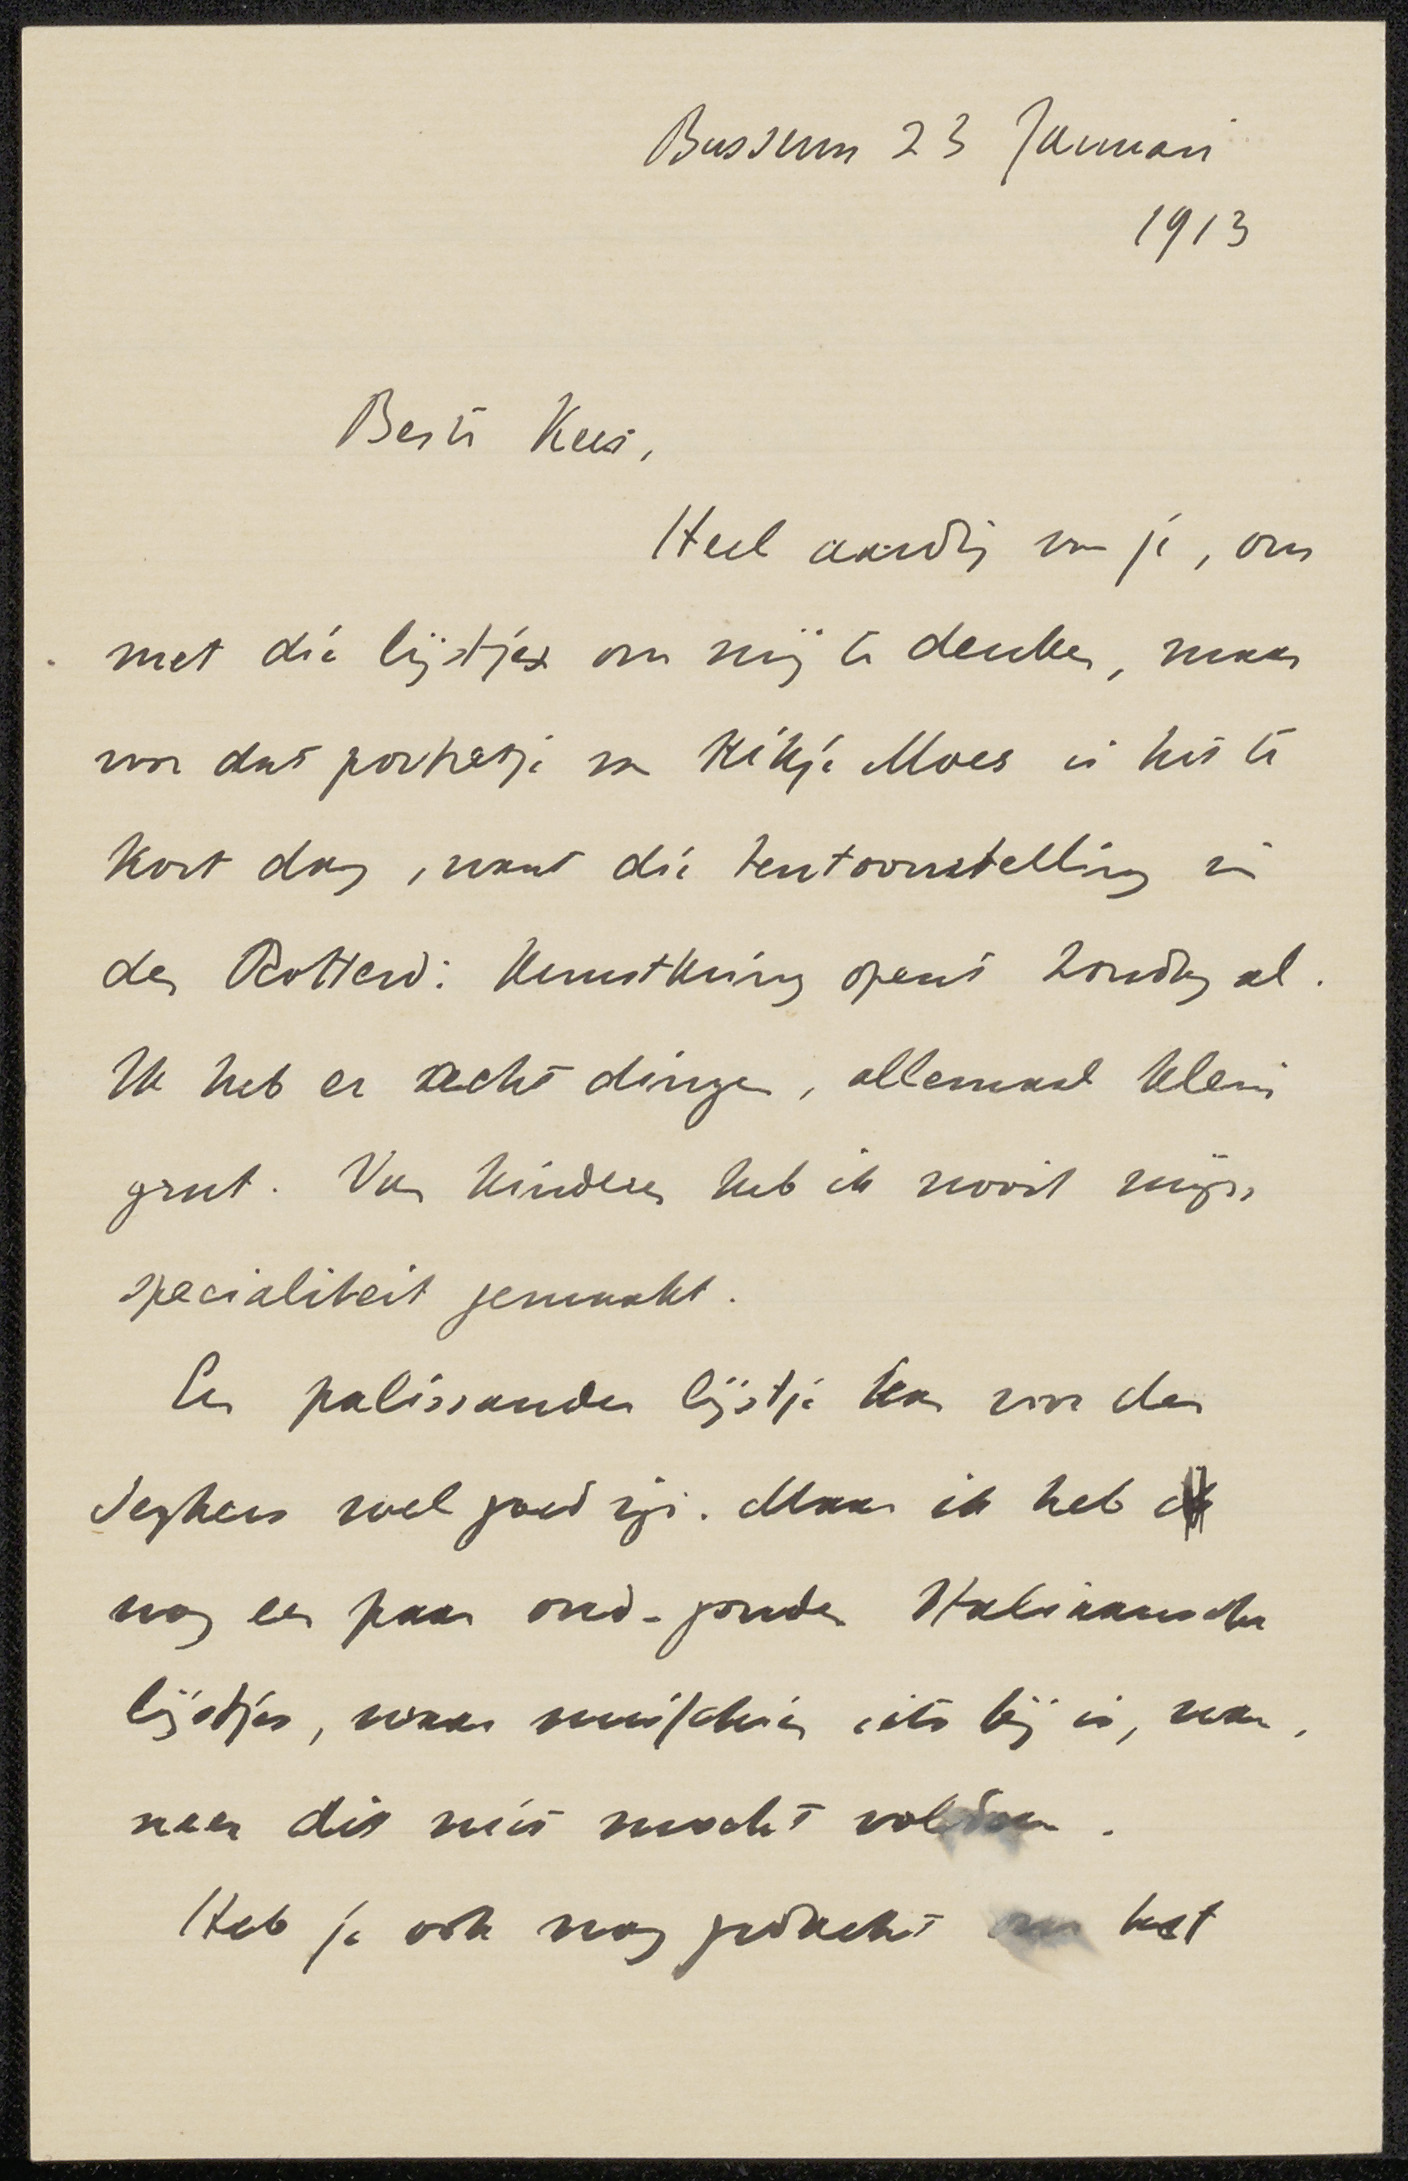 Bussum 23 Januari
1913
Beste Kees,
Heel aardig van je, om
met die lijstjes om mij te denken, maar
voor dat portretje van Kikje Moes is het te
kort dag, want die tentoonstelling in
den Rotterd: Kunstkring opent Zondag al.
Ik heb er acht dingen, allemaal klein
grut. Van kinderen heb ik nooit mijn
specialiteit gemaakt.
Een palissander lijstje kan voor den
Seghers wel goed zijn. Maar ik heb
nog een paar oud-gouden Italiaansche
lijstjes, waar misschien iets bij is, wan,
neer dit niet mocht voldoen.
Heb je ook nog gedacht om het